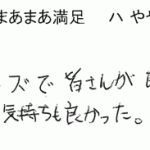 まあまあ満足 ハ やや
ズで皆さんが
気持ちも良かった。